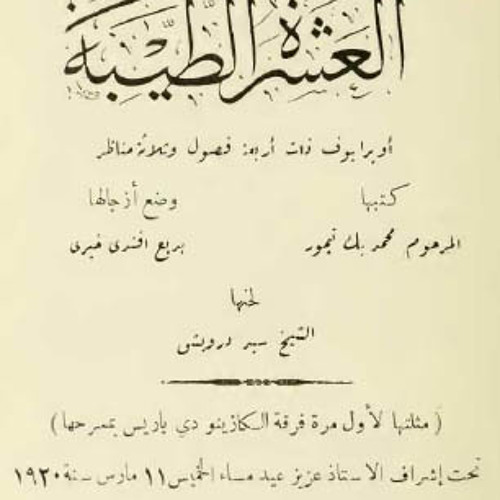 العشرة الطيبة
أوبرا بوف ذات أربعة فصول وثلاثة مناظر
كتبها وضع أزجالها
المرحوم محمد بك تيمور بديع افندى خيرى
لحنها
الشيخ سيد درويش
( مثلتها لأول مرة فرقة الكازينو دي باريس بمسرحها )
تحت إشراف الاستاذ عزيز عيد مساء الخميس ١١ مارس سنة ١٩٢٠